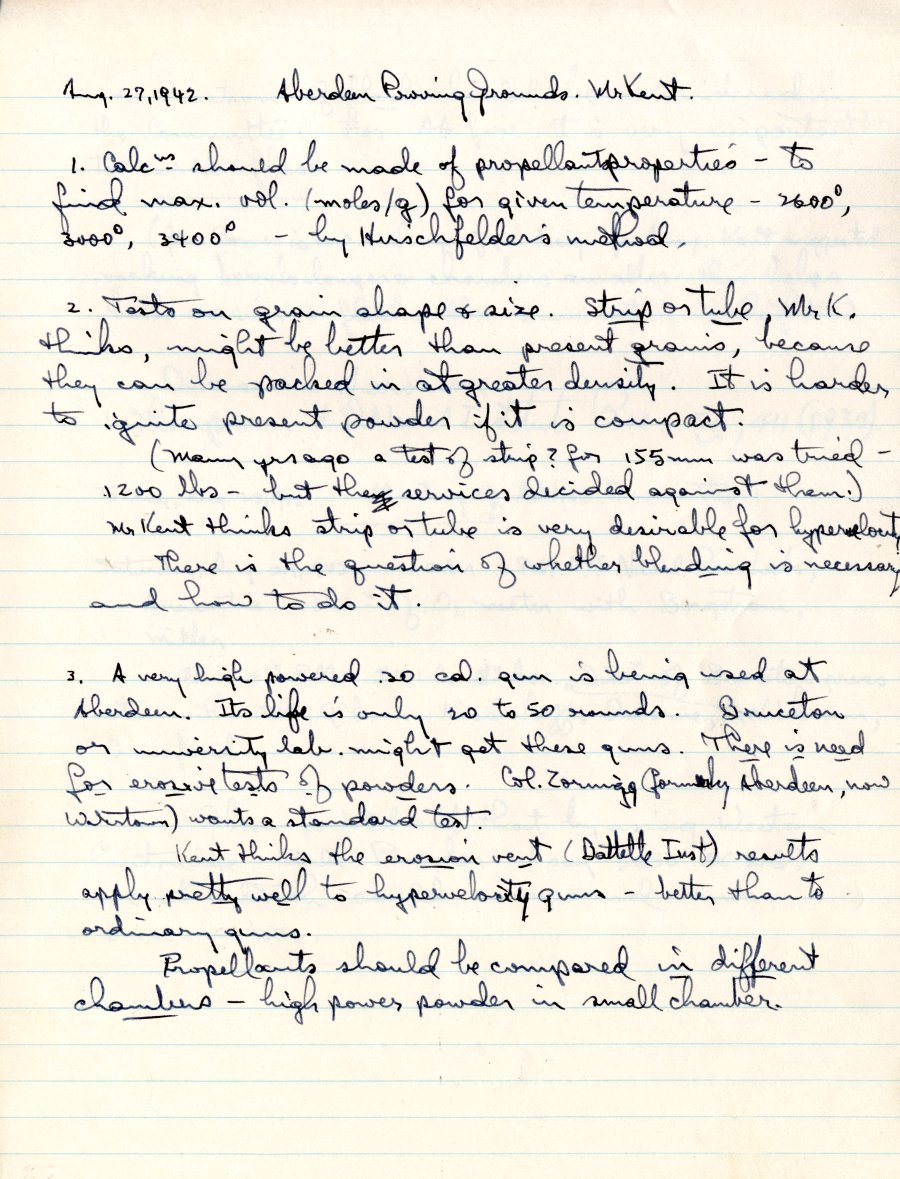 Aug. 27, 1942. Aberdeen Proving Grounds. Mr Kent.
1. Calcns should be made of propellant properties - to
find max. vol. (moles/g) for given temperature - 2600°,
3000°, 3400° - by Hirschfelder's method.
2. Tests on grain shape & size. Strip or tube, Mr K.
thinks, might be better than present grains, because
they can be packed in at greater density. It is harder
to ignite present powder if it is compact.
(Many yrs ago a test of strip? for 155mm was tried -
1200 lbs - but the services decided against them.)
Mr Kent thinks strip or tube is very desirable for hypervelocity
There is the question of whether blending is necessary
and how to do it.
3. A very high powered .30 cal. gun is being used at
Aberdeen. Its life is only 20 to 50 rounds. Bruceton
or university lab. might get these guns. There is need
for erosive tests of powders. Col. Zornig (formerly Aberdeen, now
Watertown) wants a standard test.
Kent thinks the erosion vent (Battelle Inst) results
apply pretty well to hypervelocity guns - better than to
ordinary guns.
Propellants should be compared in different
chambers - high power powder in small chamber.